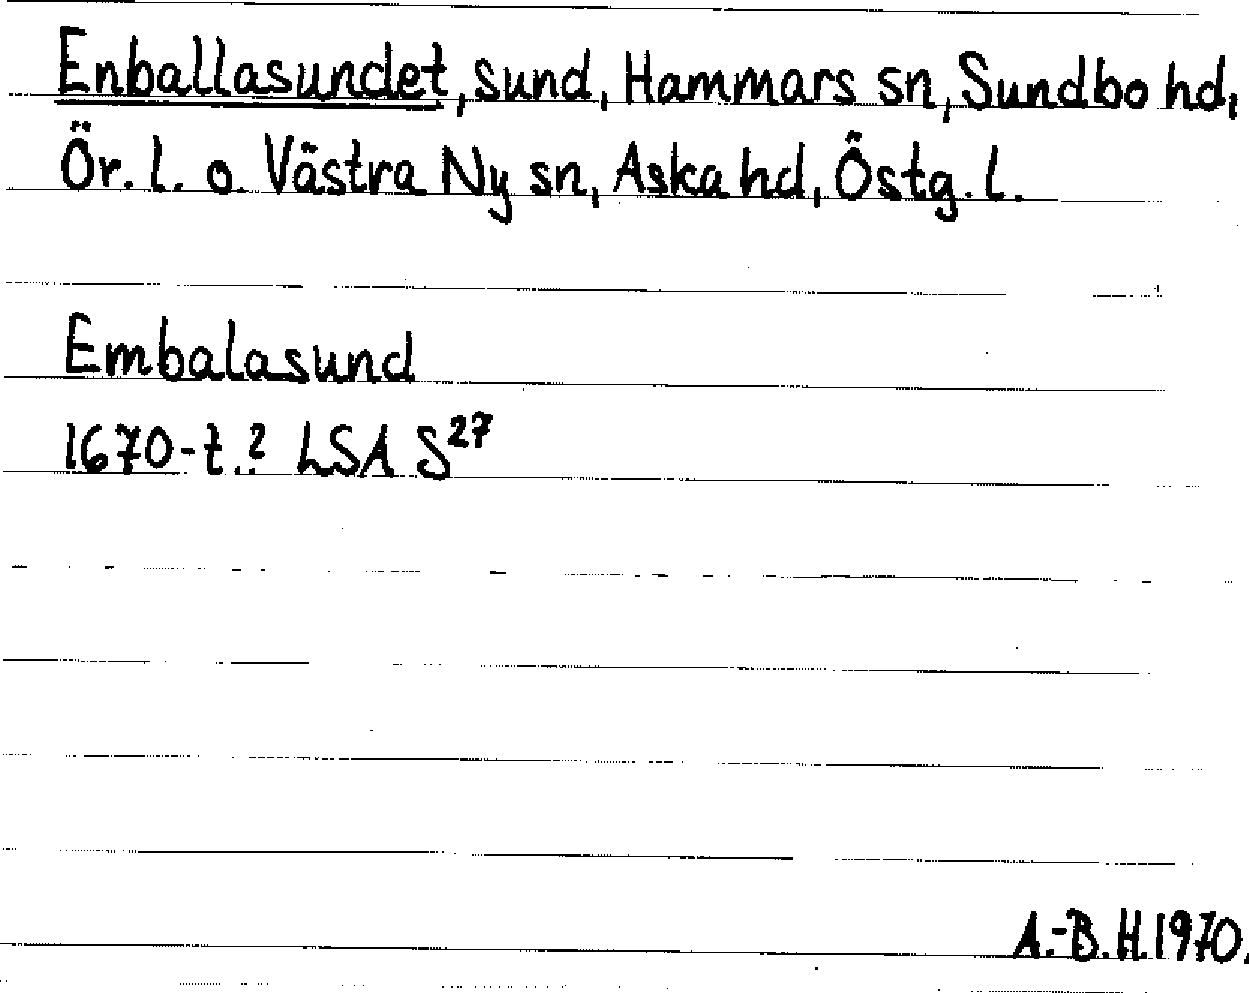 Enballasundet, sund, Hammars sn, Sundbo hd,
Ör. l. o. Västra Ny sn, Aska hd, Östg. l.
Embalasund
1670-t.? LSA S²⁷
A.-B.H. 1970.